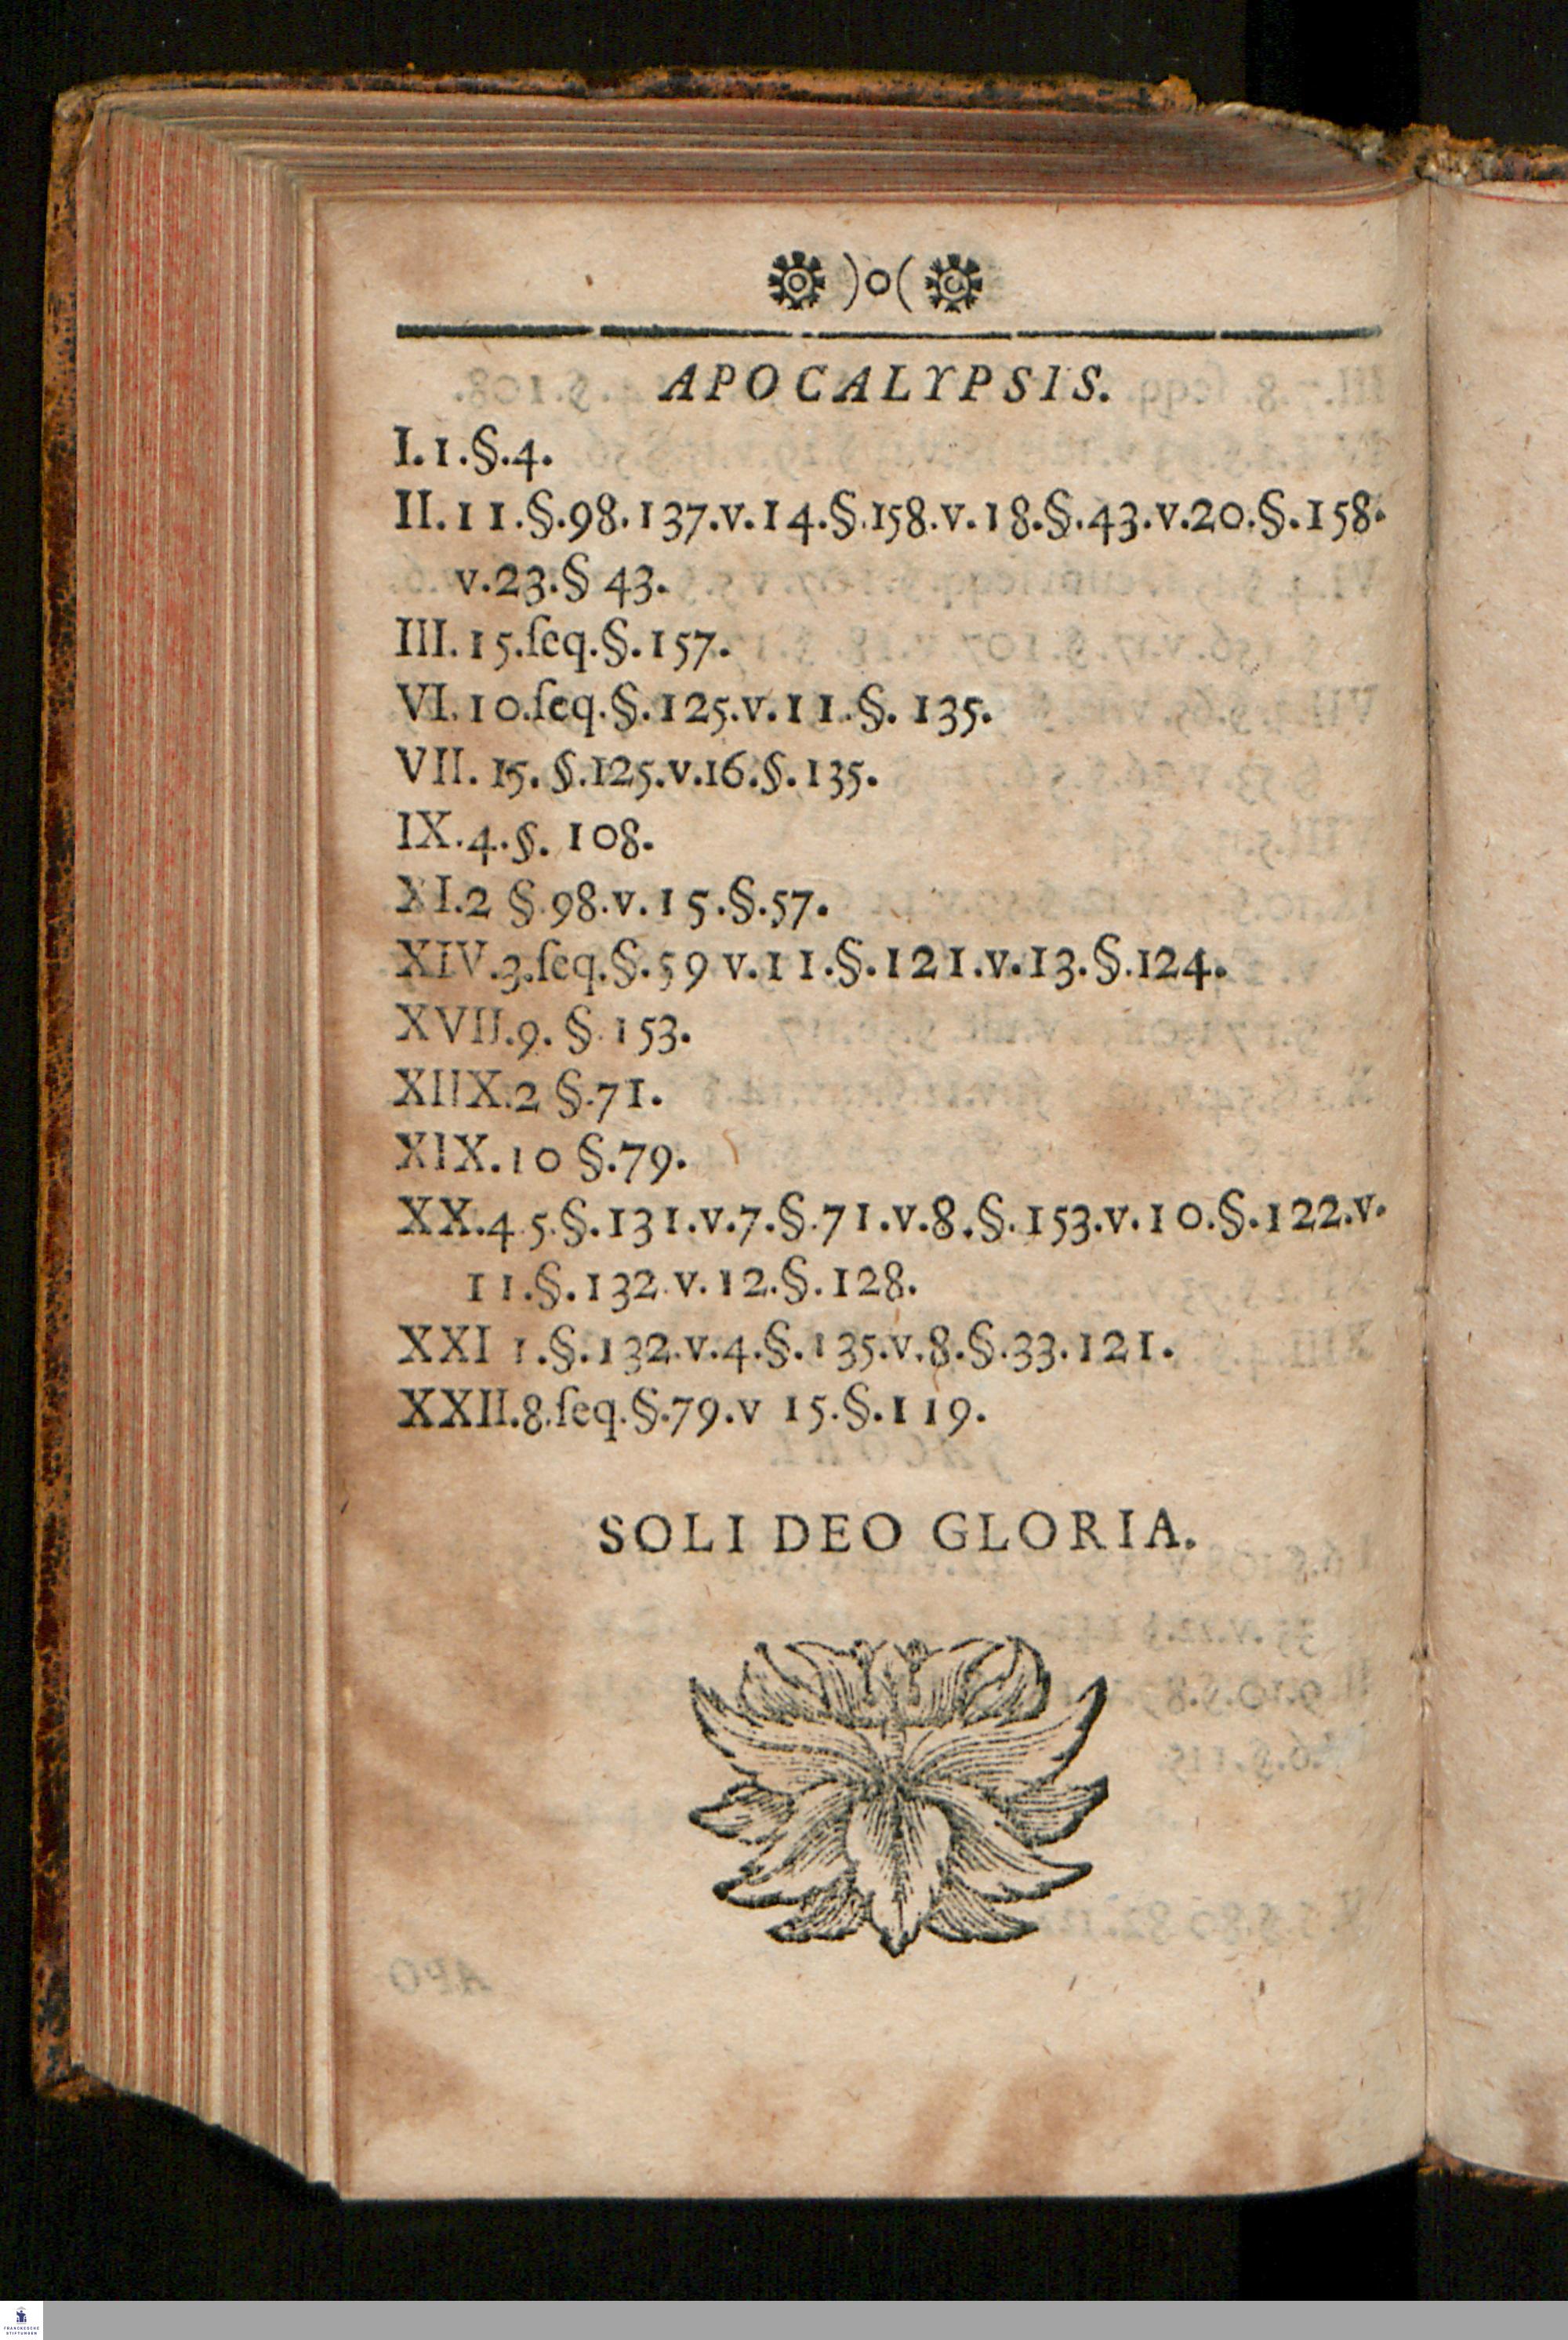 )o(
APOCALYPSIS.
I. 1.§.4.
II. 11.§.98.137.v.14.§.158.v.18.§.43.v.20.§.158.
v.23.§ 43.
III. 15.ſeq.§.157.
VI. 10.ſeq.§.125.v.11.§. 135.
VII. 15. §.125.v.16.§.135.
IX.4.§. 108.
XI.2 §.98.v.15.§.57.
XIV.3.ſeq.§.59 v.11.§.121.v.13.§.124.
XVII.9. §.153.
XIIX.2 §.71.
XIX.10 §.79.
XX.4 5.§.131.v.7.§.71.v.8.§.153.v.10.§.122.v.
11.§.132.v.12.§.128.
XXI 1.§.132.v.4.§.135.v.8.§.33.121.
XXII.8.ſeq.§.79.v 15.§.119.
SOLI DEO GLORIA.
FRANCKESCHE
STIFTUNGEN